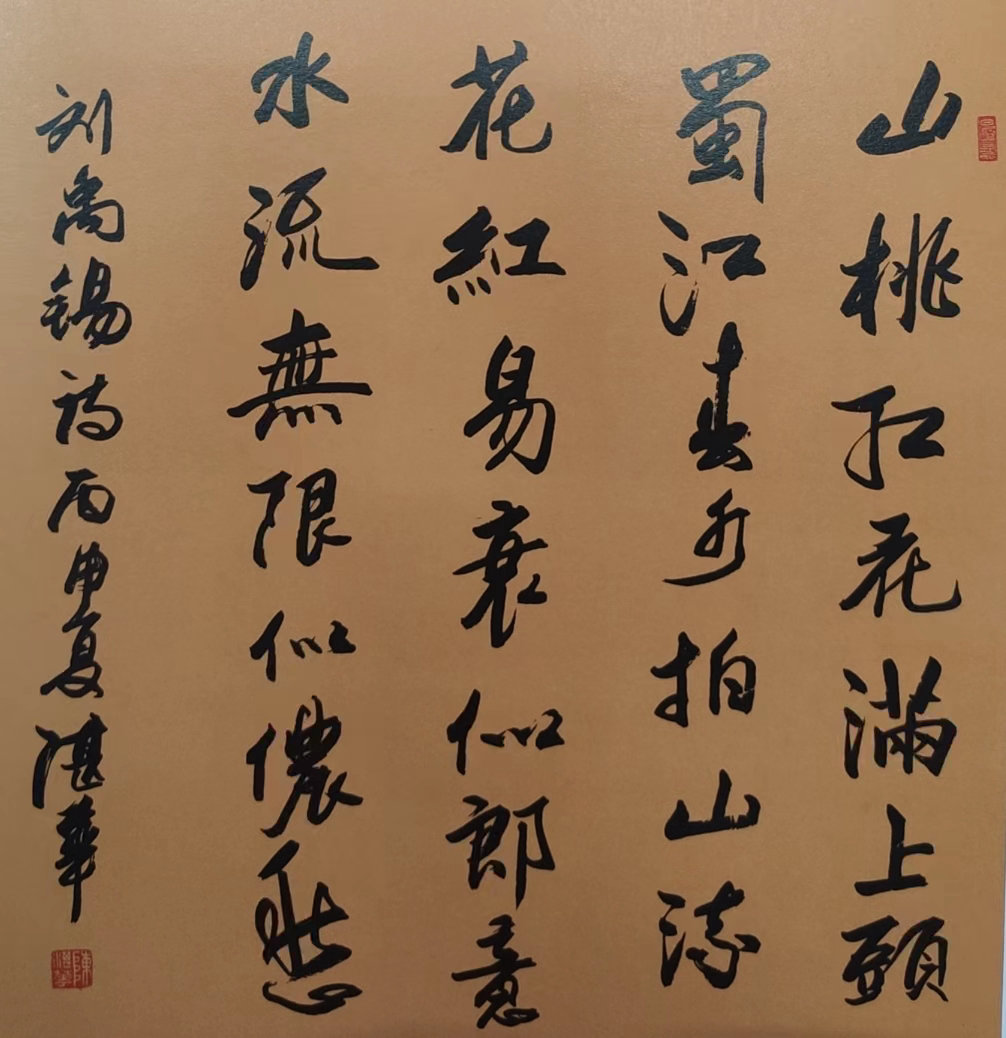 山桃红花滿上頭
蜀江春水拍山流
花紅易衰似郎意
水流無限似儂愁
刘禹錫诗丙申夏湛華